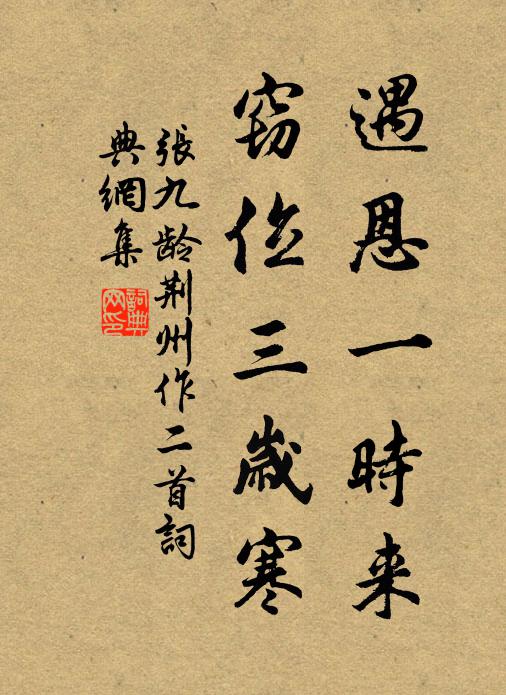 遇恩一時来
窃位三歲寒
張九龄荆州作二首詞
典網集
詞典
网印